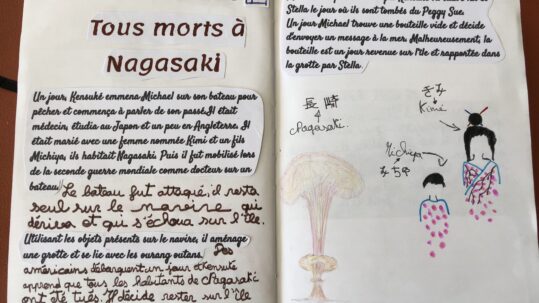 Tous morts à
Nagasaki
Un jour, Kensuké emmena Michael sur son bateau pour
pêcher et commença à parler de son passé.Il était
médecin, étudia au Japon et un peu en Angleterre. Il
était marié avec une femme nommée Kimi et un fils
Michiya, ils habitait Nagasaki. Puis il fut mobilisé lors
de la seconde guerre mondiale comme docteur sur un
bateau. Le bateau fut attaqué, il resta
seul sur le navire qui
dériva et qui s'échoua sur l'île.
Utilisant les objets présents sur le navire, il aménage
une grotte et se lie avec les ourang outans. Des
américains débarquent un jour et Kensuke
apprend que tous les habitants de Nagasaki
ont été tués. Il décide rester sur l'île
Stella le jour où ils sont tombés du Peggy Sue.
Un jour Michael trouve une bouteille vide et décide
d'envoyer un message à la mer. Malheureusement, la
bouteille est un jour revenue sur l'île et rapportée dans
la grotte par Stella
長崎
Nagasaki.
きみ
Kimi
Michiya
みちや